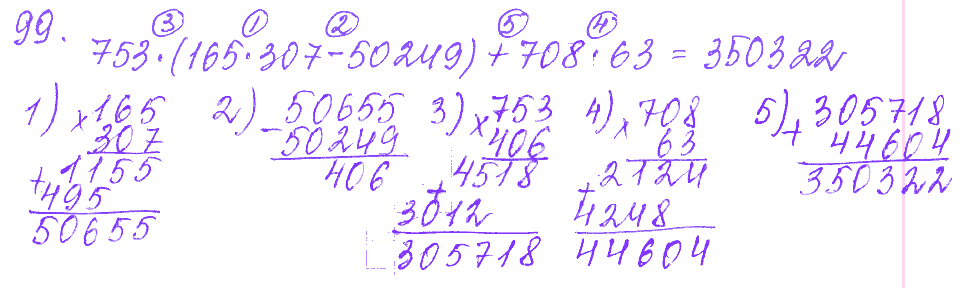 99.
③ ① ② ⑤ ④
753·(165·307-50249)+708·63=350322
1) ×165 2) -50655 3) ×753 4) ×708 5) +305718
307 50249 406 63 44604
+1155 406 +4518 +2124 350322
495 3012 4248
50655 305718 44604